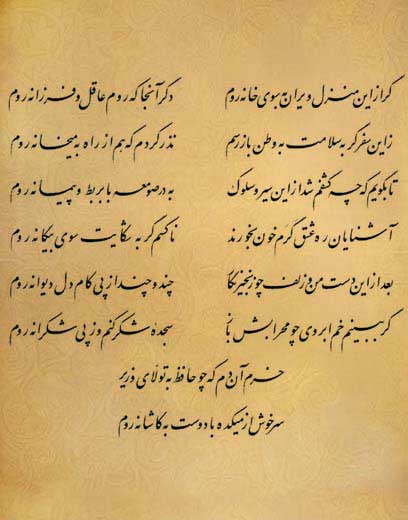 گر ازین منزل ویران به سوی خانه روم دگر آنجا که روم عاقل و فرزانه روم
زین سفر گر به سلامت به وطن باز رسم نذر کردم که هم از راه به میخانه روم
تا بگویم که چه کشفم شد ازین سیر و سلوک به در صومعه با بربط و پیمانه روم
آشنایان ره عشق گرم خون بخورند ناکسم گر به شکایت سوی بیگانه روم
بعد ازین دست من و زلف چو زنجیر نگار چند و چند از پی کام دل دیوانه روم
گر ببینم خم ابروی چو محرابش باز سجده شکر کنم وز پی شکرانه روم
خرم آن دم که چو حافظ به تولّای وزیر
سرخوش از میکده با دوست به کاشانه روم